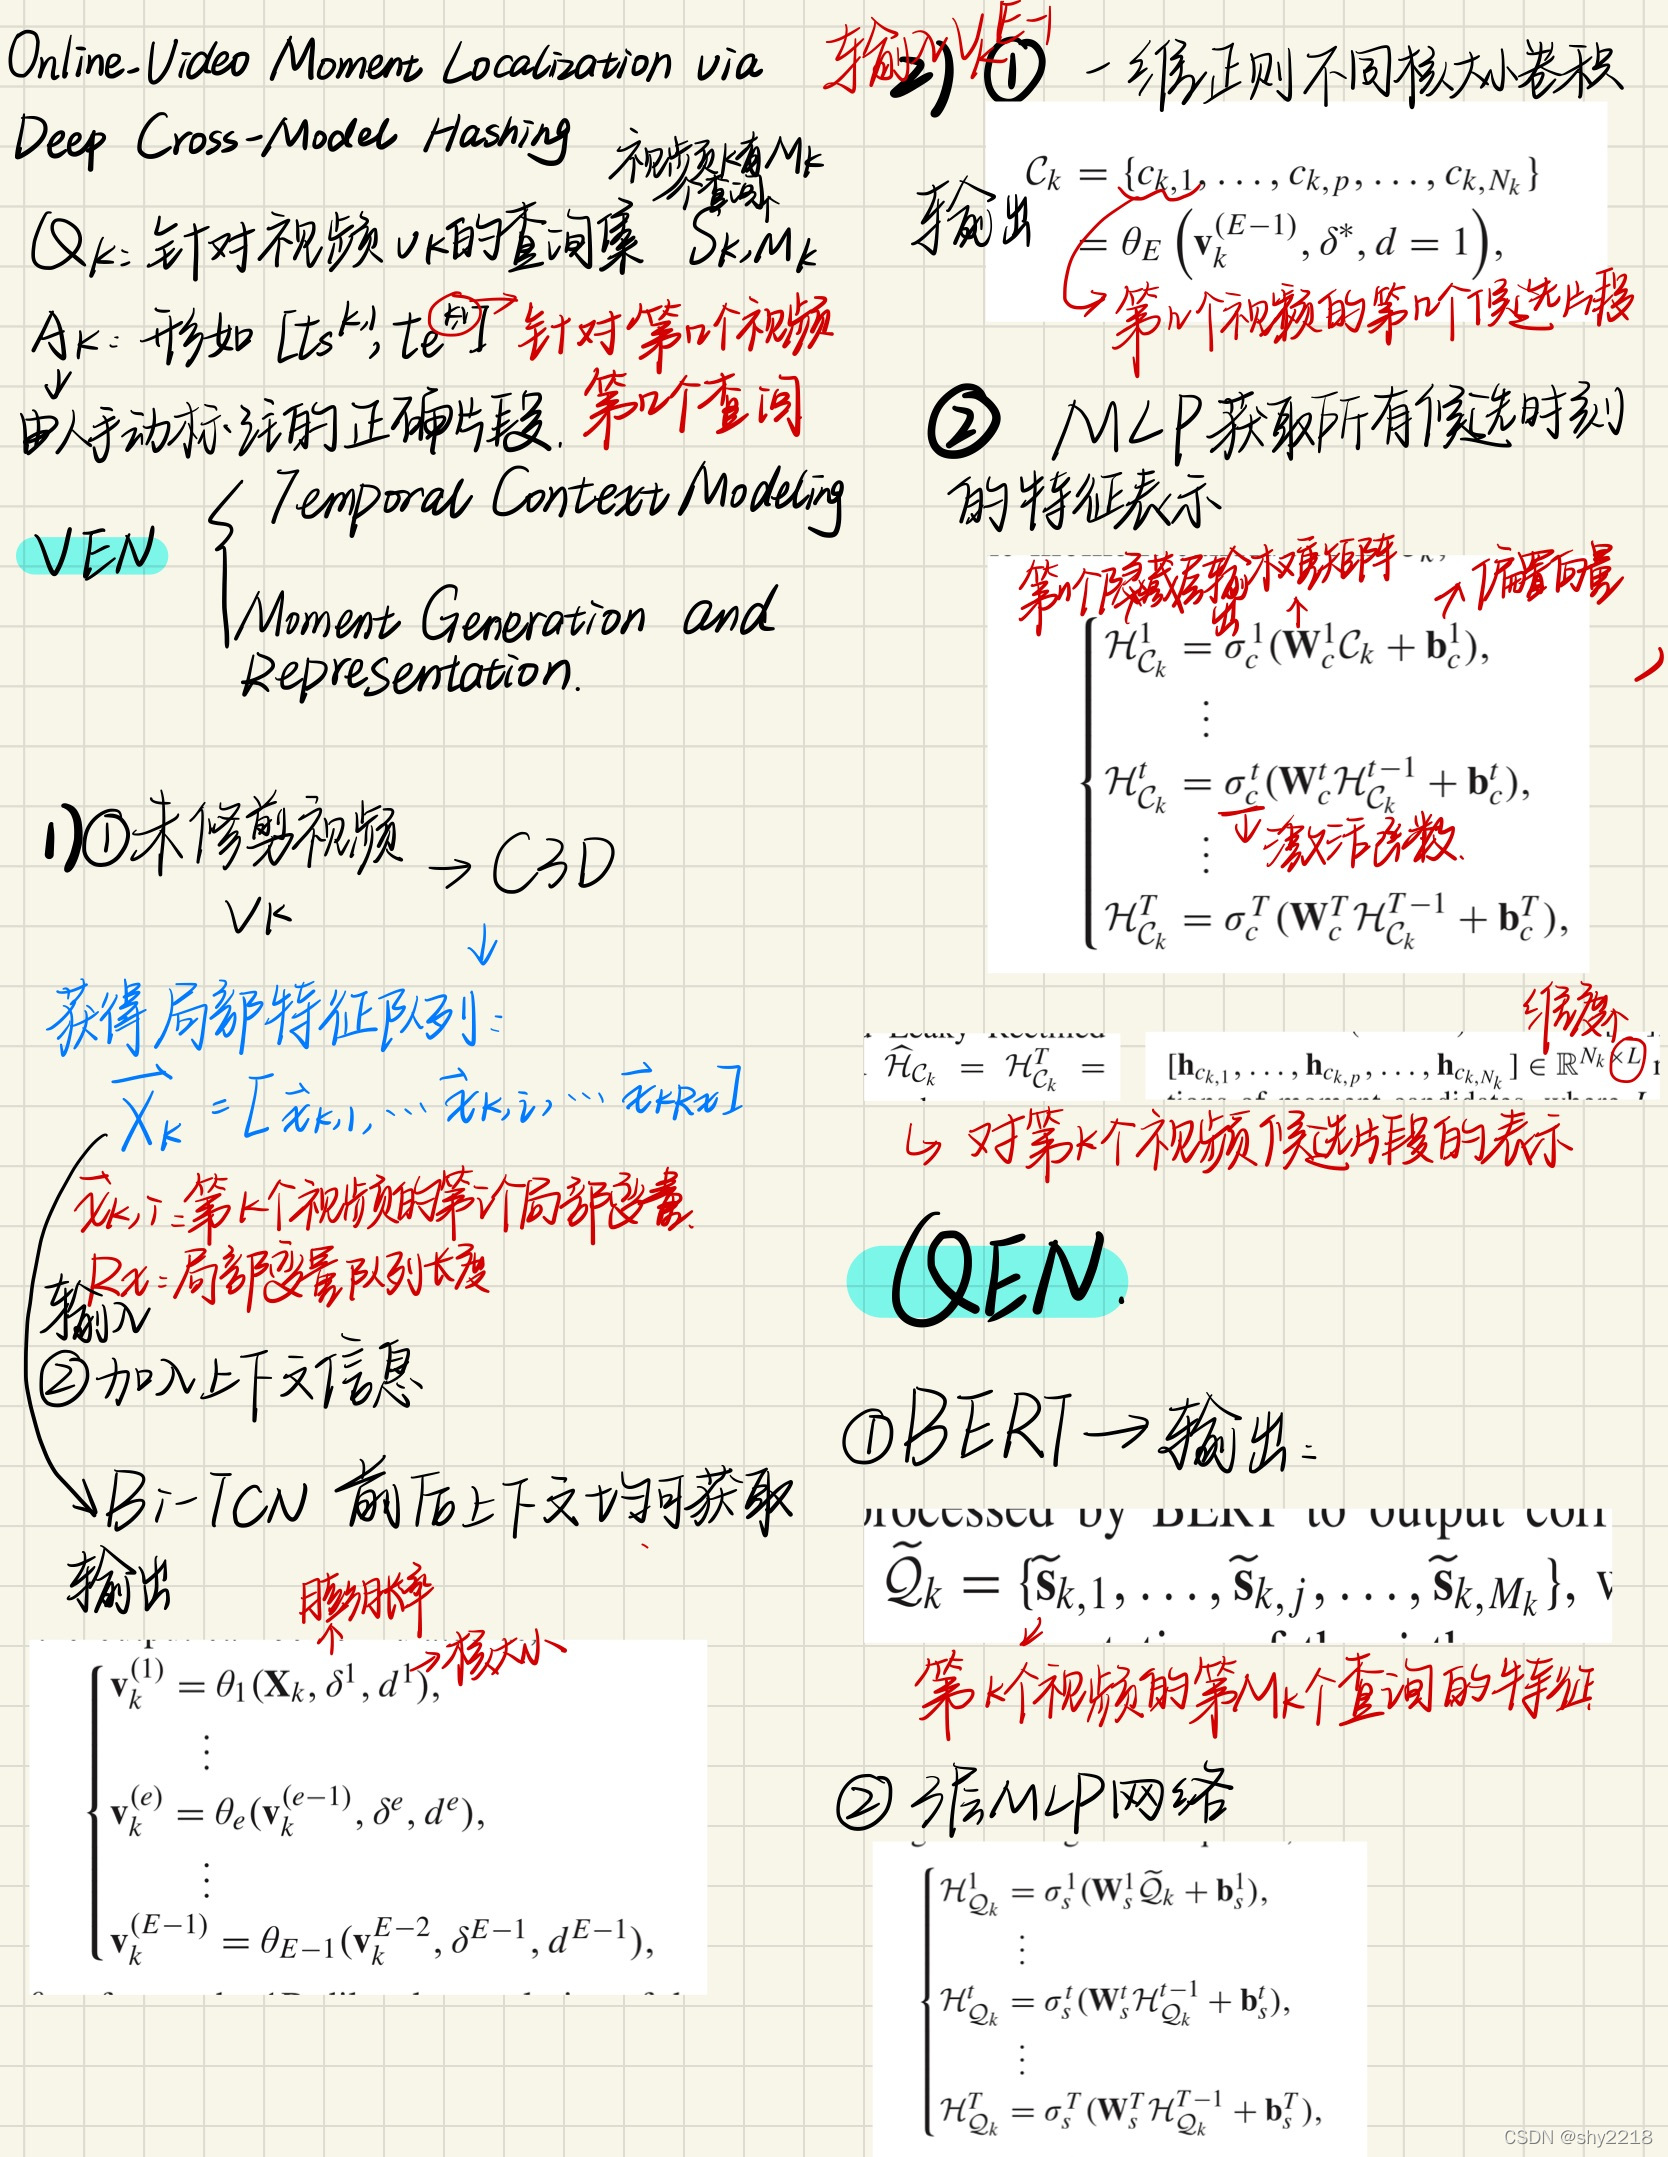 Online-Video Moment Localization via
Deep Cross-Model Hashing
视频k有Mk
个查询
Qk: 针对视频vk的查询集 Sk,Mk
Ak: 形如 [ts^{k,1}, te^{k,1}] → 针对第几个视频
第几个查询
↓
由人手动标注的正确片段.
VEN { Temporal Context Modeling
Moment Generation and
Representation.
1) ① 未修剪视频 → C3D
Vk
↓
获得局部特征队列:
X_k = [x_{k,1}, ... x_{k,i}, ... x_{kRx}]
x_{k,i}: 第k个视频的第i个局部变量
Rx: 局部变量队列长度
输入
② 加入上下文信息
Bi-TCN 前后上下文均可获取
输出
膨胀率
→ 核大小
v_k^{(1)} = θ_1(X_k, δ^1, d^1),
⋮
v_k^{(e)} = θ_e(v_k^{(e−1)}, δ^e, d^e),
⋮
v_k^{(E−1)} = θ_{E−1}(v_k^{E−2}, δ^{E−1}, d^{E−1}),
输入V_k^{E-1}
2) ① 一维正则不同核大小卷积
输出
C_k = {c_{k,1}, . . . , c_{k,p}, . . . , c_{k,N_k}}
= θ_E (v_k^{(E−1)}, δ*, d = 1),
第几个视频的第几个候选片段
② MLP获取所有候选时刻
的特征表示
第n个隐藏层输出 权重矩阵 偏置向量
H^1_{C_k} = σ_c^1(W_c^1 C_k + b_c^1),
⋮
H^t_{C_k} = σ_c^t(W_c^t H^{t−1}_{C_k} + b_c^t),
↓ 激活函数.
⋮
H^T_{C_k} = σ_c^T(W_c^T H^{T−1}_{C_k} + b_c^T),
维度
Ĥ_{C_k} = H^T_{C_k} =
[h_{c_{k,1}}, . . . , h_{c_{k,p}}, . . . , h_{c_{k,N_k}}] ∈ ℝ^{N_k×L}
↳ 对第k个视频候选片段的表示
QEN.
① BERT → 输出:
processed by BERT to output corr
Q̃_k = {s̃_{k,1}, . . . , s̃_{k,j}, . . . , s̃_{k,M_k}},
第k个视频的第Mk个查询的特征
② 3层MLP网络
H^1_{Q_k} = σ_s^1(W_s^1 Q̃_k + b_s^1),
⋮
H^t_{Q_k} = σ_s^t(W_s^t H^{t−1}_{Q_k} + b_s^t),
⋮
H^T_{Q_k} = σ_s^T(W_s^T H^{T−1}_{Q_k} + b_s^T),
CSDN @shy2218